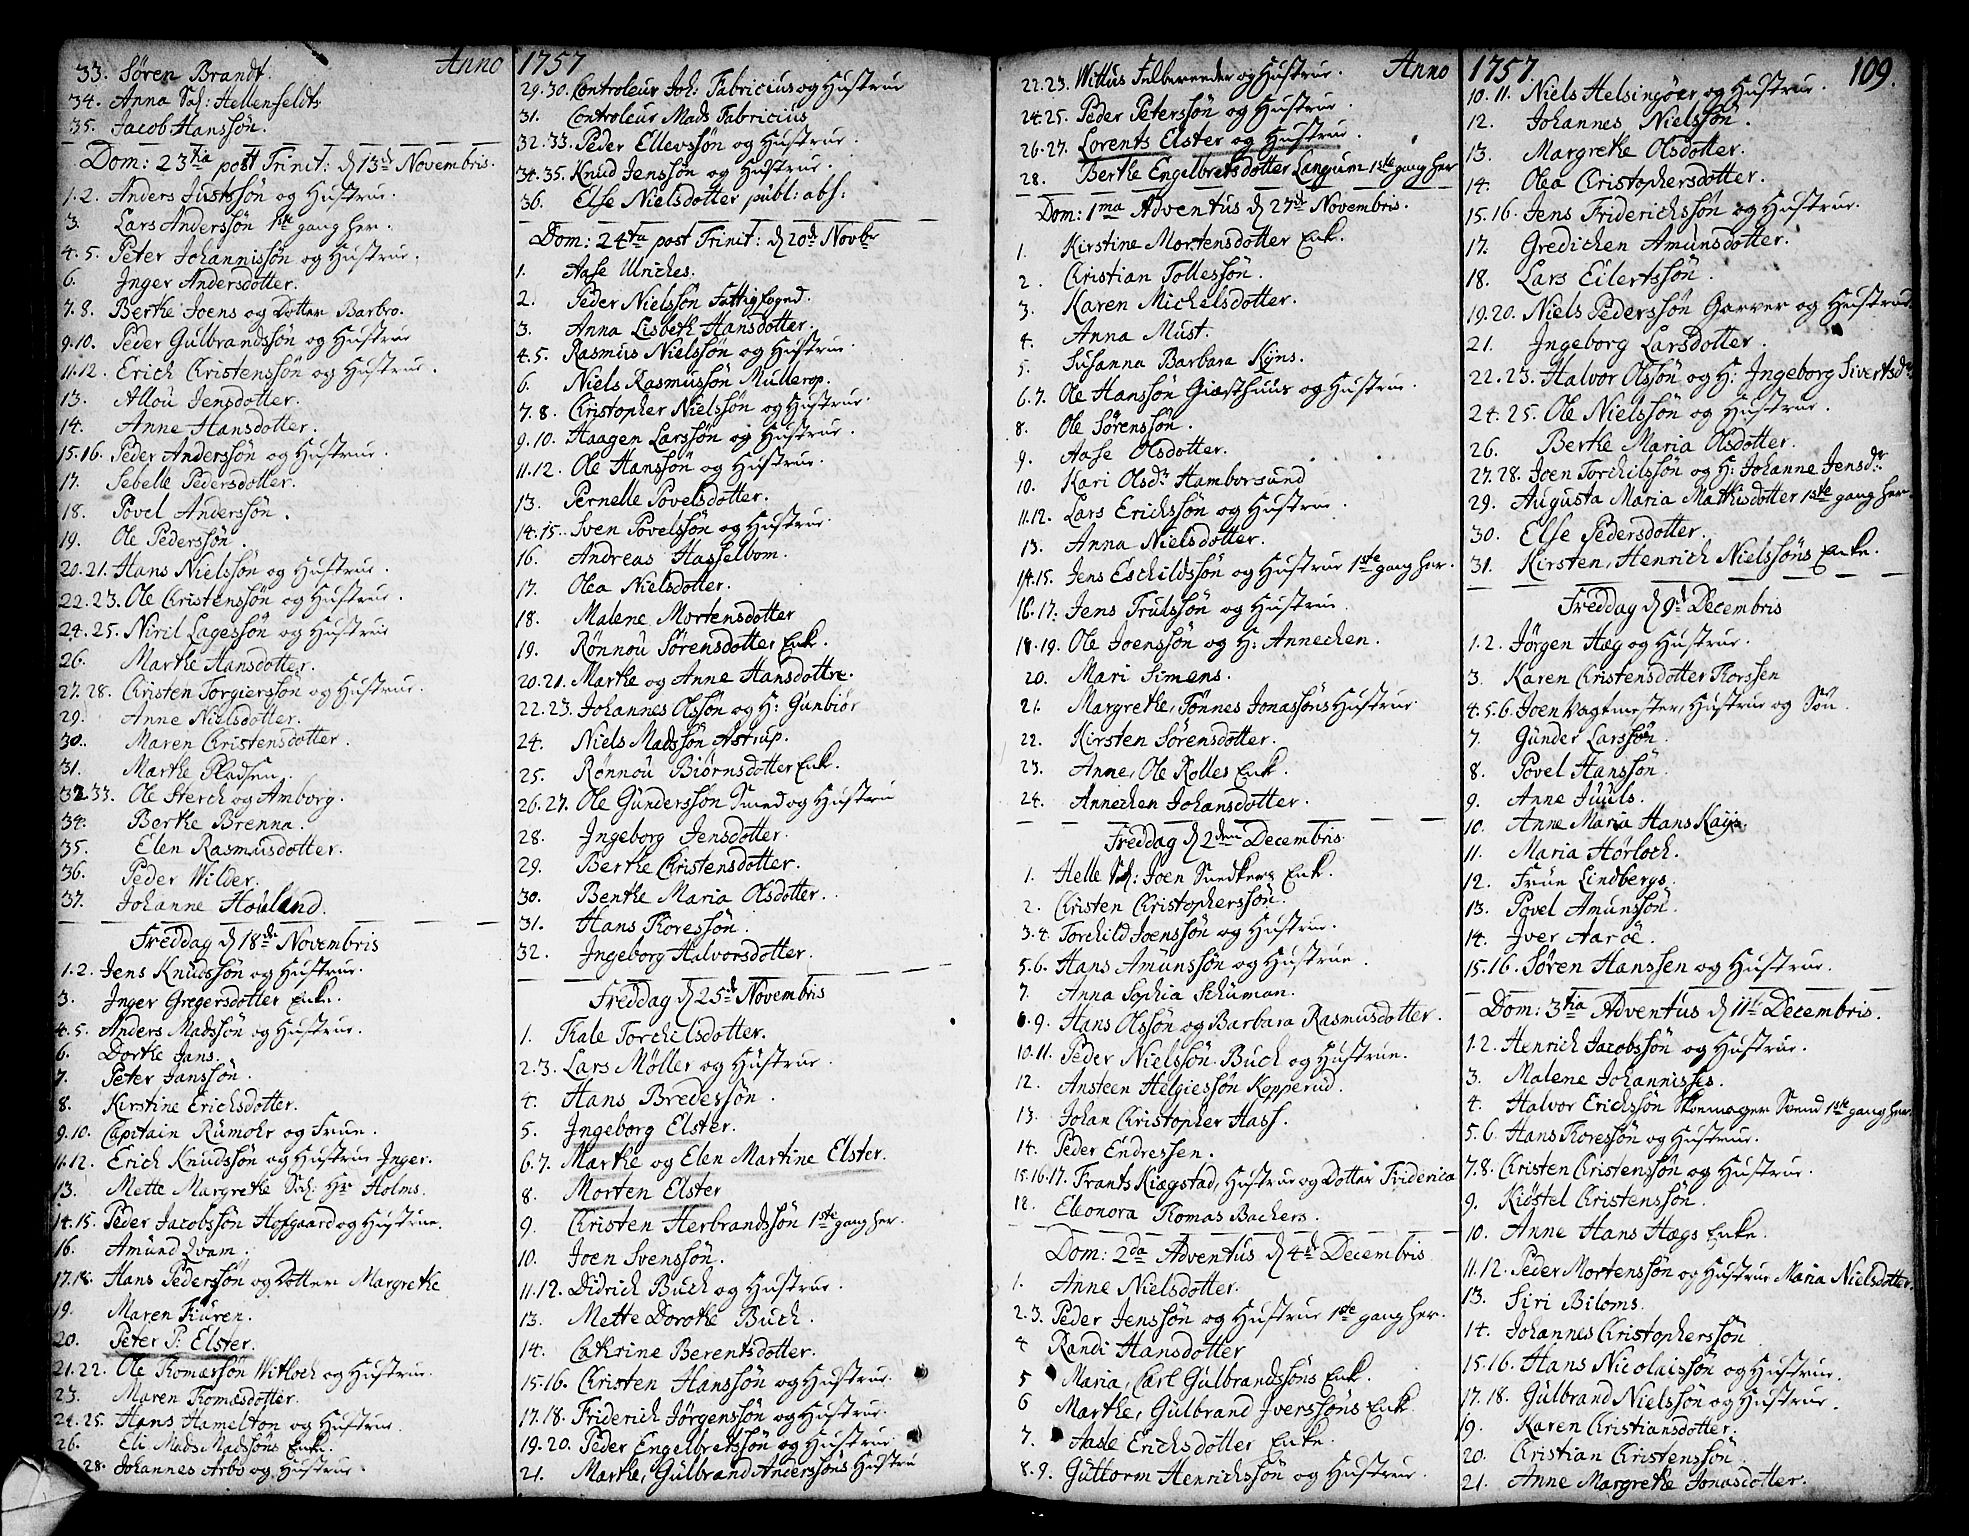 Anno 1757
33. Søren Brandt.
34. Anna Sal: Hellenfeldts
35. Jacob Hanssøn.
Dom: 23tia post Trinit: d 13de Novembris.
1.2. Anders Justssøn og Hustrue.
3. Lars Anderssøn 1ste gang her.
4.5. Peter Johannissøn og Hustrue.
6. Inger Andersdotter.
7.8. Berthe Joens og Dotter Barbro.
9.10. Peder Gulbrandssøn og Hustrue
11.12. Erich Christenssøn og Hustrue.
13. Allou Jensdotter.
14. Anne Hansdotter.
15.16. Peder Anderssøn og Hustrue.
17. Sebelle Pedersdotter.
18. Povel Anderssøn.
19. Ole Pederssøn.
20.21. Hans Nielssøn og Hustrue.
22.23. Ole Christenssøn og Hustrue.
24.25. Niril Lagessøn og Hustrue
26. Marthe Hansdotter.
27.28. Christen Torgierssøn og Hustrue.
29. Anne Nielsdotter.
30. Maren Christensdotter.
31. Marthe Pladsen
32.33. Ole Sterch og Amborg.
34. Berthe Brenna.
35. Elen Rasmusdotter.
36. Peder Wilder.
37. Johanne Houland.
Freddag d 18de Novembris
1.2. Jens Knudssøn og Hustrue.
3. Inger Gregersdotter Enke.
4.5. Anders Madssøn og Hustrue.
6. Dorthe Jans.
7. Peter Janssøn.
8. Kirstine Erichsdotter.
9.10. Capitain Rumohr og Frue.
11.12. Erich Knudssøn og Hustrue Inger.
13. Mette Margrethe Sal: Hr Holms.
14.15. Peder Jacobssøn Hofgaard og Hustrue.
16. Amund Qvam.
17.18. Hans Pederssøn og Dotter Margrethe
19. Maren Fiuren.
20. Peter P: Elster.
21.22. Ole Thomæssøn Witloch og Hustrue.
23. Maren Thomæsdotter.
24.25. Hans Hamelton og Hustrue.
26. Eli Mads Madssøns Enke.
28. Johannes Arbo og Hustrue.
29.30. Controleur Joh: Fabricius og Hustrue
31. Controleur Mads Fabricius
32.33. Peder Ellevssøn og Hustrue.
34.35. Knud Jenssøn og Hustrue.
36. Else Nielsdotter publ: abs:
Dom: 24ta post Trinit: d 20de Novbr
1. Aase Ulriches.
2. Peder Nielssøn Fattigfogd.
3. Anna Lisbeth Hansdotter.
4.5. Rasmus Nielssøn og Hustrue.
6. Niels Rasmussøn Mullerop.
7.8. Christopher Nielssøn og Hustrue.
9.10. Haagen Larssøn og Hustrue.
11.12. Ole Hanssøn og Hustrue.
13. Pernelle Povelsdotter.
14.15. Sven Povelssøn og Hustrue.
16. Andreas Hasselbom.
17. Olea Nielsdotter.
18. Malene Mortensdotter
19. Rønnou Sørensdotter Enk.
20.21. Marthe og Anne Hansdottre.
22.23. Johannes Olssøn og H: Gunbiør
24. Niels Madssøn Astrup.
25. Rønnou Biørnsdotter Enk.
26.27. Ole Gunderssøn Smed og Hustrue
28. Ingeborg Jensdotter.
29. Berthe Christensdotter.
30. Benthe Maria Olsdotter.
31. Hans Thoressøn.
32. Ingeborg Halvorsdotter.
Freddag d 25de Novembris
1. Thale Torchelsdotter.
2.3. Lars Møller og Hustrue.
4. Hans Bredessøn.
5. Ingeborg Elster.
6.7. Marthe og Elen Martine Elster.
8. Morten Elster
9. Christen Herbrandssøn 1ste gang her.
10. Joen Svenssøn.
11.12. Didrich Buch og Hustrue.
13. Mette Dorothe Buch.
14. Cathrine Berentsdotter.
15.16. Christen Hanssøn og Hustrue.
17.18. Friderich Jørgenssøn og Hustrue.
19.20. Peder Engelbretssøn og Hustrue.
21. Marthe, Gulbrand Anderssøns Hustru
Anno 1757. 109.
22.23. Wittus og Hustrue.
24.25. Peder Peterssøn og Hustrue.
26.27. Lorents Elster og Hustrue.
28. Berthe Engelbretsdotter Langum 1ste gang her
Dom: 1ma Adventus d 27de Novembris.
1. Kirstine Mortensdotter Enk.
2. Christian Tollessøn.
3. Karen Michelsdotter.
4. Anna Must.
5. Susanna Barbara Kyns.
6.7. Ole Hanssøn Giæsthuus og Hustrue.
8. Ole Sørenssøn.
9. Aase Olsdotter.
10. Kari Olsdr Hamborsund
11.12. Lars Erichssøn og Hustrue.
13. Anna Nielsdotter.
14.15. Jens Eschildssøn og Hustrue 1ste gang her.
16.17. Jens Trulssøn og Hustrue.
18.19. Ole Joenssøn og H: Annechen.
20. Mari Simens.
21. Margrethe, Tønnes Jonassøns Hustrue.
22. Kirsten Sørensdotter.
23. Anne, Ole Rolles Enk.
24. Annechen Johansdotter.
Freddag d 2den Decembris
1. Helle Sal: Joen Snedkers Enk.
2. Christen Christopherssøn.
3.4. Torchild Joenssøn og Hustrue.
5.6. Hans Amunssøn og Hustrue.
7. Anna Sophia Schuman.
8.9. Hans Olssøn og Barbara Rasmusdotter.
10.11. Peder Nielssøn Buch og Hustrue.
12. Ansteen Helgiessøn Kopperud.
13. Johan Christopher Hass.
14. Peder Endressen.
15.16.17. Frants Kiægstad, Hustrue og Dotter Friderica
18. Eleonora Thomas Bachers.
Dom: 2da Adventus d 4de Decembris
1. Anne Nielsdotter.
2.3. Peder Jenssøn og Hustrue 1ste gang her.
4 Randi Hansdotter
5 Maria, Carl Gulbrandssøns Enk.
6 Marthe, Gulbrand Iverssøns Enk.
7. Aasle Erichsdotter Enke.
8.9. Guttorm Henrichssøn og Hustrue.
10.11. Niels Helsingøer og Hustrue.
12. Johannes Nielssøn.
13. Margrethe Olsdotter.
14. Olea Christophersdotter.
15.16. Jens Friderichssøn og Hustrue.
17. Gredichen Amunsdotter.
18. Lars Eilertssøn.
19.20. Niels Pederssøn Garver og Hustrue
21. Ingeborg Larsdotter.
22.23. Halvor Olssøn og H: Ingeborg Sivertsdr.
24.25. Ole Nielssøn og Hustrue.
26. Berthe Maria Olsdotter.
27.28. Joen Torchilssøn og H: Johanne Jensdr.
29. Augusta Maria Mathisdotter 1ste gang her.
30. Else Pedersdotter.
31. Kirsten, Henrich Nielssøns Enke.
Freddag d 9de Decembris
1.2. Jørgen Hæg og Hustrue.
3. Karen Christensdotter Thorssen
4.5.6. Joen Vagtmester, Hustrue og Søn.
7. Gunder Larssøn.
8. Povel Hanssøn.
9. Anne Juuls.
10. Anne Maria Hans Kaijs
11. Maria Hørloch.
12. Frue Lindbergs.
13. Povel Amunssøn.
14. Iver Aaroe.
15.16. Søren Hanssen og Hustrue.
Dom: 3tia Adventus d 11te Decembris.
1.2. Henrich Jacobssøn og Hustrue.
3. Malene Johannisses.
4. Halvor Erichssøn Skoemager Svend 1ste gang her.
5.6. Hans Thoressøn og Hustrue.
7.8. Christen Christenssøn og Hustrue.
9. Kiøstel Christenssøn.
10. Anne Hans Hægs Enke.
11.12. Peder Mortenssøn og Hustrue Maria Nielsdotter.
13. Siri Biloms.
14. Johannes Christopherssøn
15.16. Hans Nicolaissøn og Hustrue.
17.18. Gulbrand Nielssøn og Hustrue.
19. Karen Christiansdotter.
20. Christian Christenssøn.
21. Anne Margrethe Jonasdotter.